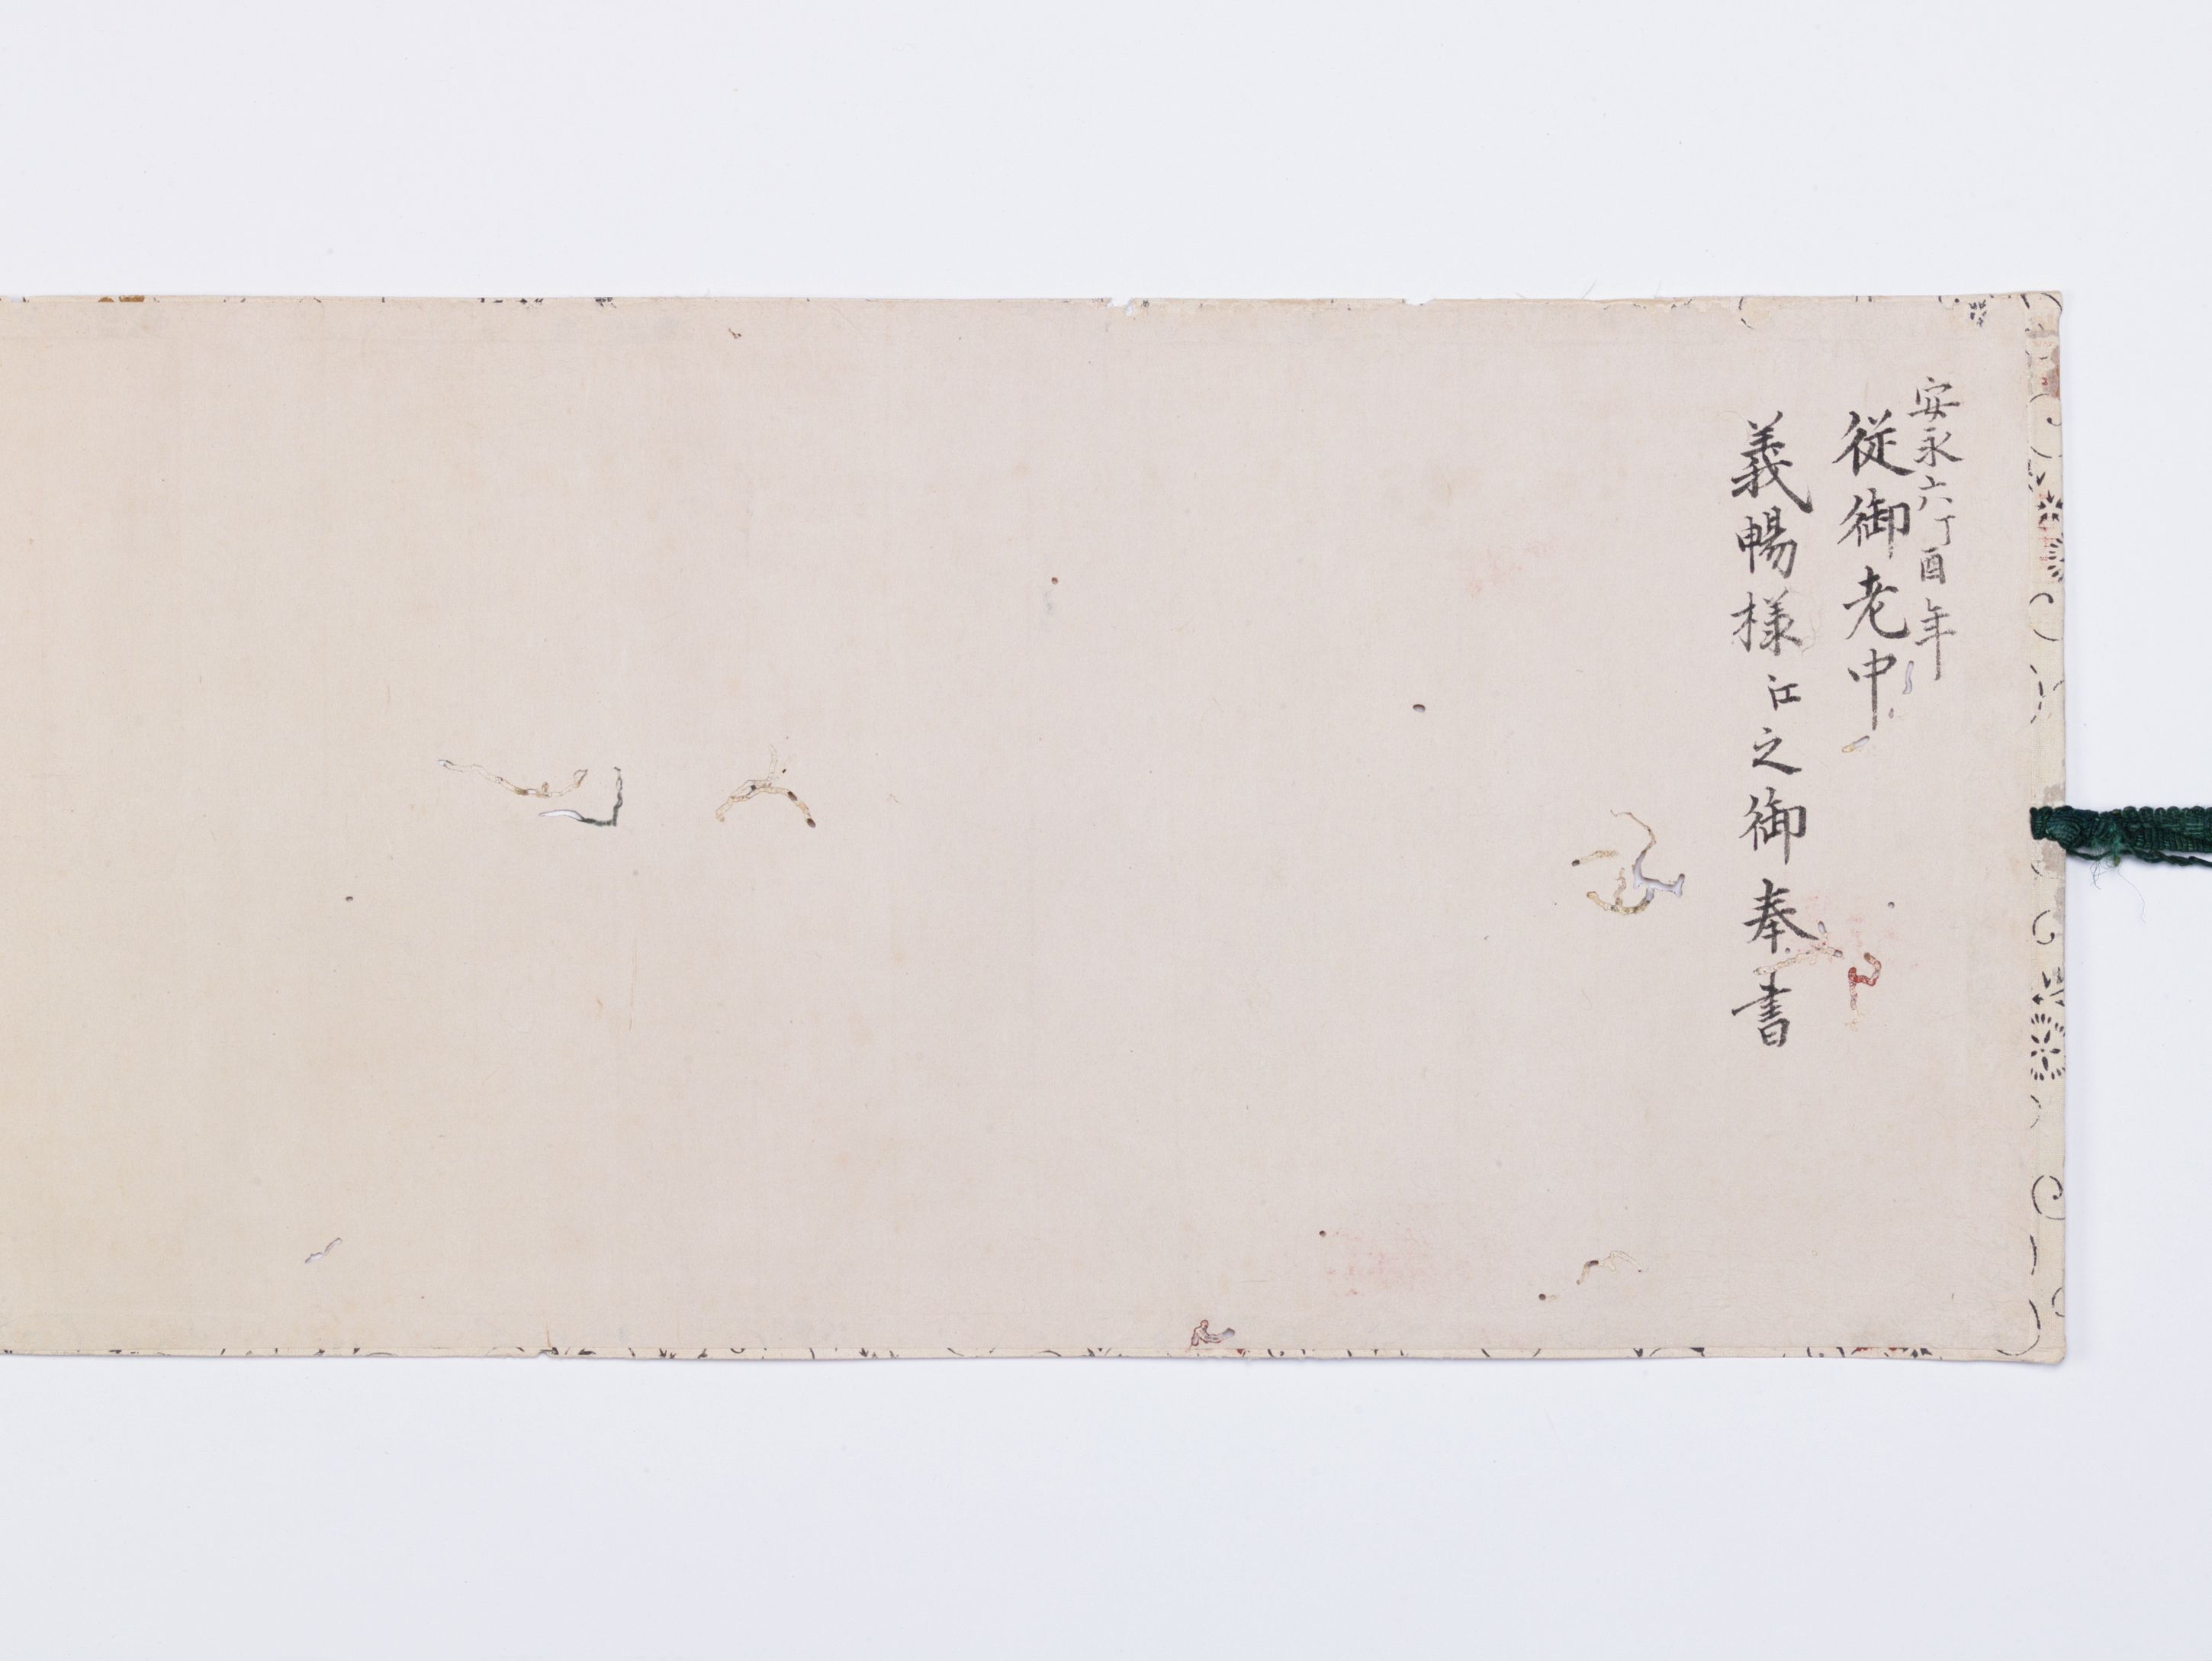 安永六丁酉年
従御老中
義暢様江之御奉書